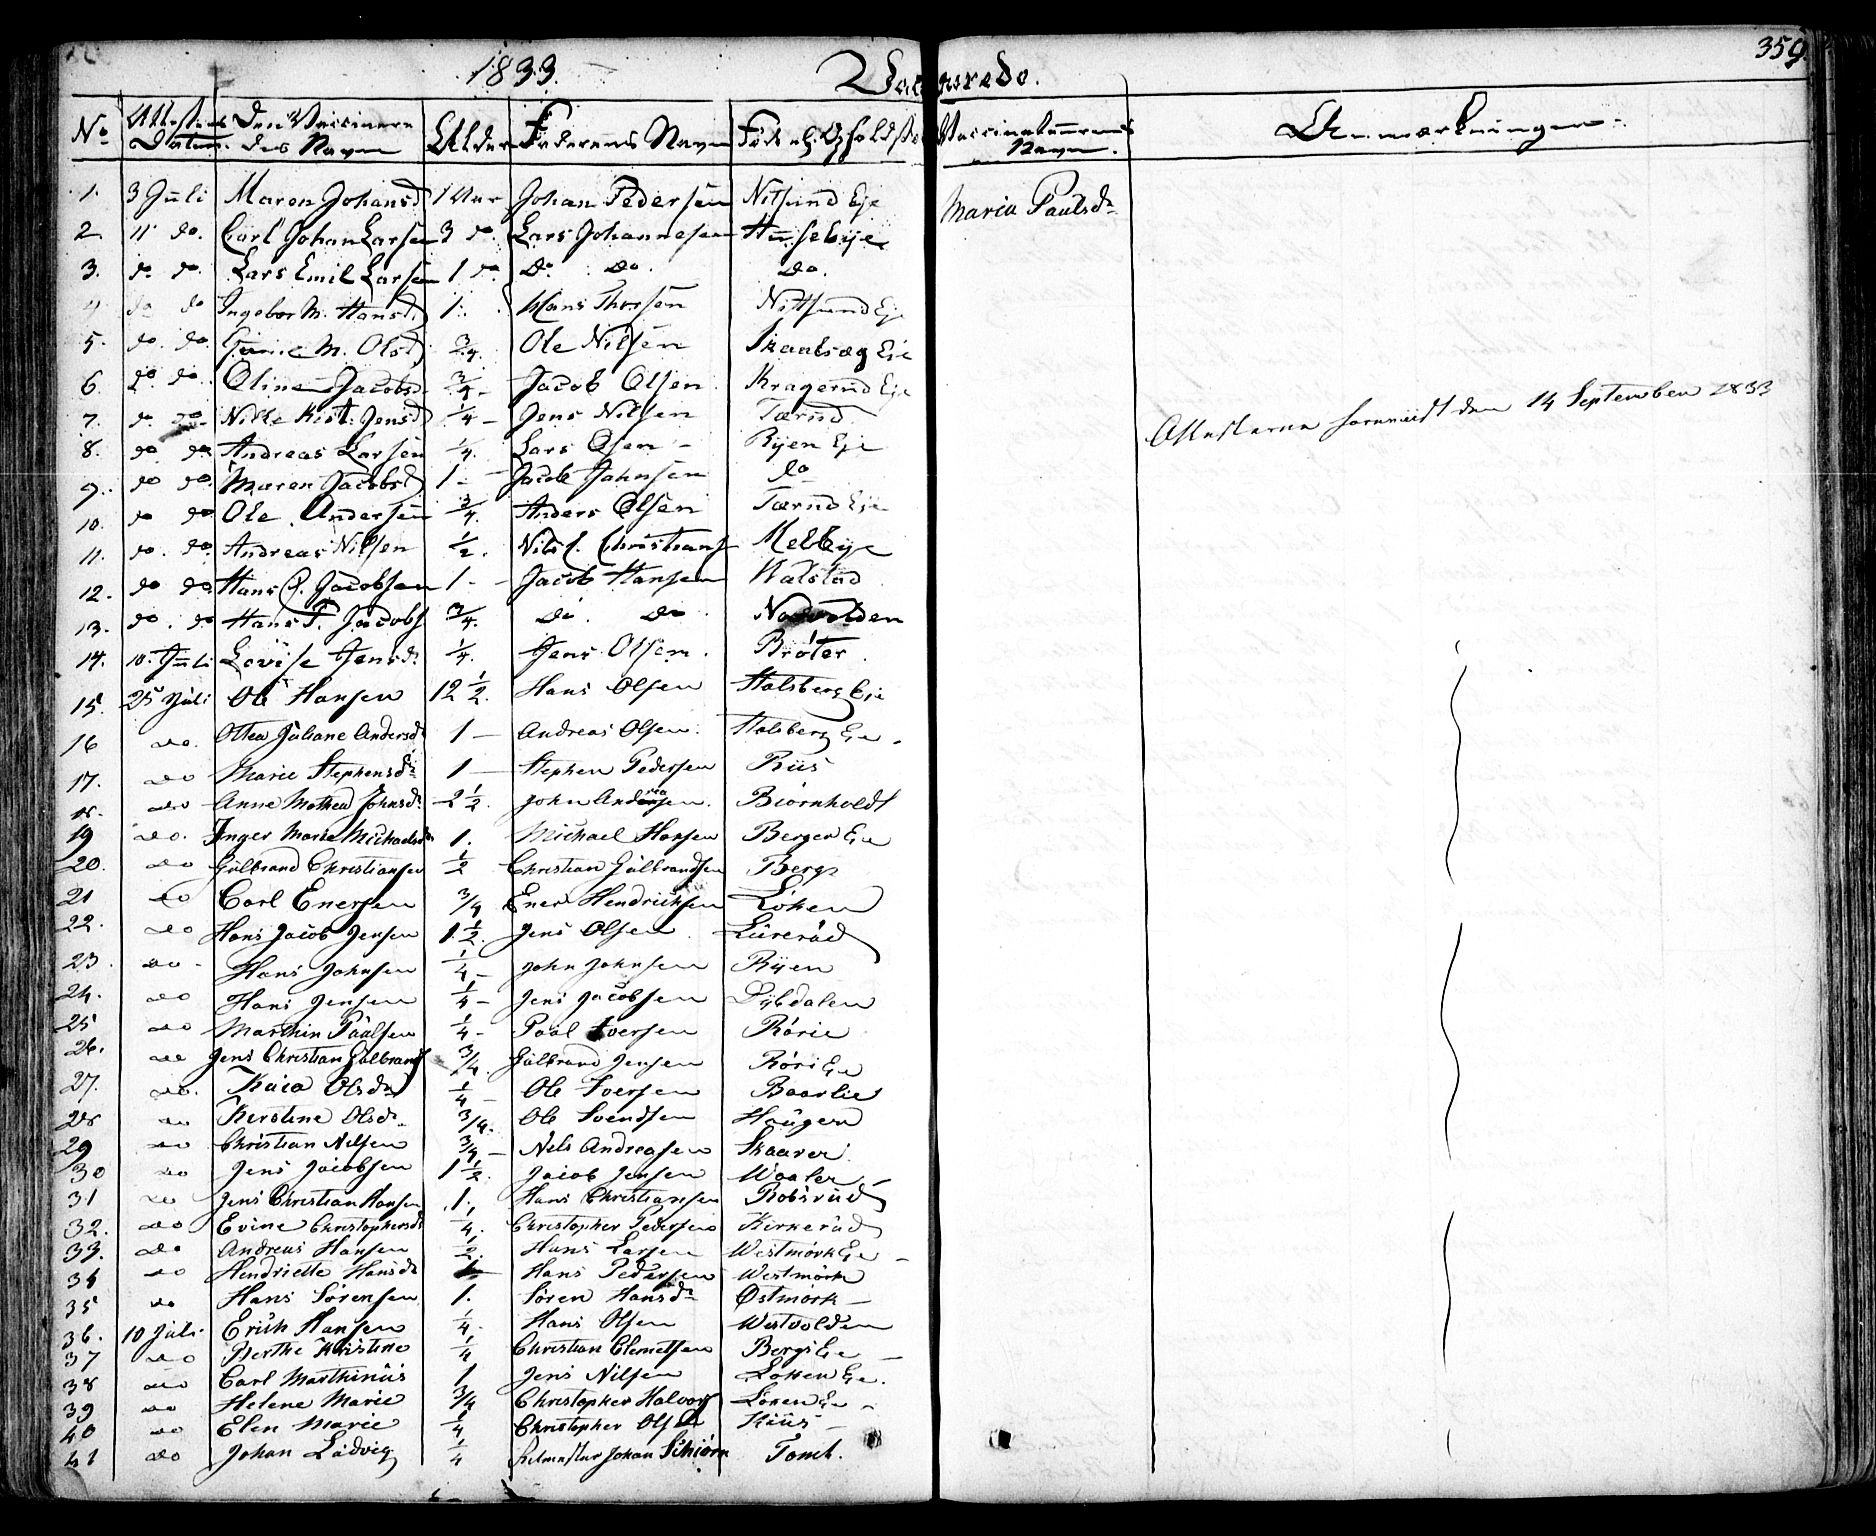 1833. Vaccinerede. 359.
No Attestens Datum. Den Vaccineredes Navn Alder Faderens Navn Føde el. Opholdsted Vaccinateurens Navn. Anmærkninger.
1. 3 Juli Maren Johansd 1 Aar Johan Pedersen Nitsund Eje Maria Paulsdr
2. 11 do. Carl Johan Larsen 3 do. Lars Johannesen Husebye
3. do do. Lars Emil Larsen 1 do Do. Do. do.
4 do do Ingebor M. Hansd 1. Hans Thorsen Nittsund Eje
5. do. do. M. Olsd 3/4. Ole Nilsen Eje
6. do. do. Oline Jacobsd. 3/4 - Jacob Olsen. Kragerud Eje
Attesterne fornyedt den 14 September 1833
7. do do Kist. Jensd 1/4 - Jens Nilsen Tærud
8. do. do. Andreas Larsen 1/4. Lars Olsen - Ryen Eje
9. do do. Maren Jacobsd 1 - Jacob Johnsen do
10. do do Ole Andersen 3/4. Anders Olsen Tærud Eje
11. do. do. Andreas Nilsen 1/2. Nils C. Christians Melbye
12. do do Hans O. Jacobsen 1 - Jacob Hansen Walstad
13. do. do Hans P. Jacobs 3/4. do. do. Nordvolden
14. 10. Juli Lovise Jensd. 1/4. Jens Olsen. Bröter
15. 25 Juli Ole Hansen 12 1/2. Hans Olsen Stalsberg Eje
16 do. Ottea Juliane Andersdr 1 - Andreas Olsen. Stalsberg Eie.
17. do Marie Stephensdr 1 - Stephen Pedersen Riis
18. do Anne Mathea Johnsdr 2 1/2. John Andersen. Biørnholdt
19 do. Inger Marie Michaelsdr 1. Michael Hansen Berger Eie
20. do Gulbrand Christiansen 1/2 Christian Gulbrandsen Berg
21 do Carl Enersen 3/4 Ener Hendricksen Löken
22. do Hans Jacob Jensen 1 1/2. Jens Olsen. Lurerud
23. do - Hans Johnsen 1/4 - John Johnsen Ryen
24. do Hans Jensen 1/4 - Jens Jacobsen Dybdalen
25 do Marthin Paulsen 1/4 - Paul Iversen Rörie
26. do Jens Christian Gulbrands 3/4. Gulbrand Jensen Röri Eie
27. do. Kaia Olsdr 1/4 - Ole Iversen Baarlie
28 do Kerstine Olsdr. 3/4. Ole Svendsen Haugen
29 do Christian Nilsen 3/4 - Nels Andreasen Skaarer
30 do Jens Jacobsen 1 1/2. Jacob Jensen Waaler
31 do Jens Christian Hansen 1. Hans Christiansen Robsrud
32. do Evine Christophersdr 1/4. Christopher Pedersen Kirkerud
33. do Andreas Hansen 1/2. Hans Larsen Westmörk Eie -
34 do Hendriette Hansdr 1 Hans Pedersen Westmörk
35 do Hans Sörensen 1. Sören Hansdr Østmörk -
36. 10 Juli. Erich Hansen 1/4. Hans Olsen Westvolden
37 do Berthe Kristine 1/4 Christian Clemetsen Bergs Eie -
38 do Carl Marthinus 1 Jens Nilsen Löken Eie.
39 do Helene Marie 3/4 Christopher Halvors Lören Eie -
40 do Elen Marie 1/4 Christopher Olsen Riis -
41 do Johan Ludvig 1/4 Johan Schiörn Tomt.